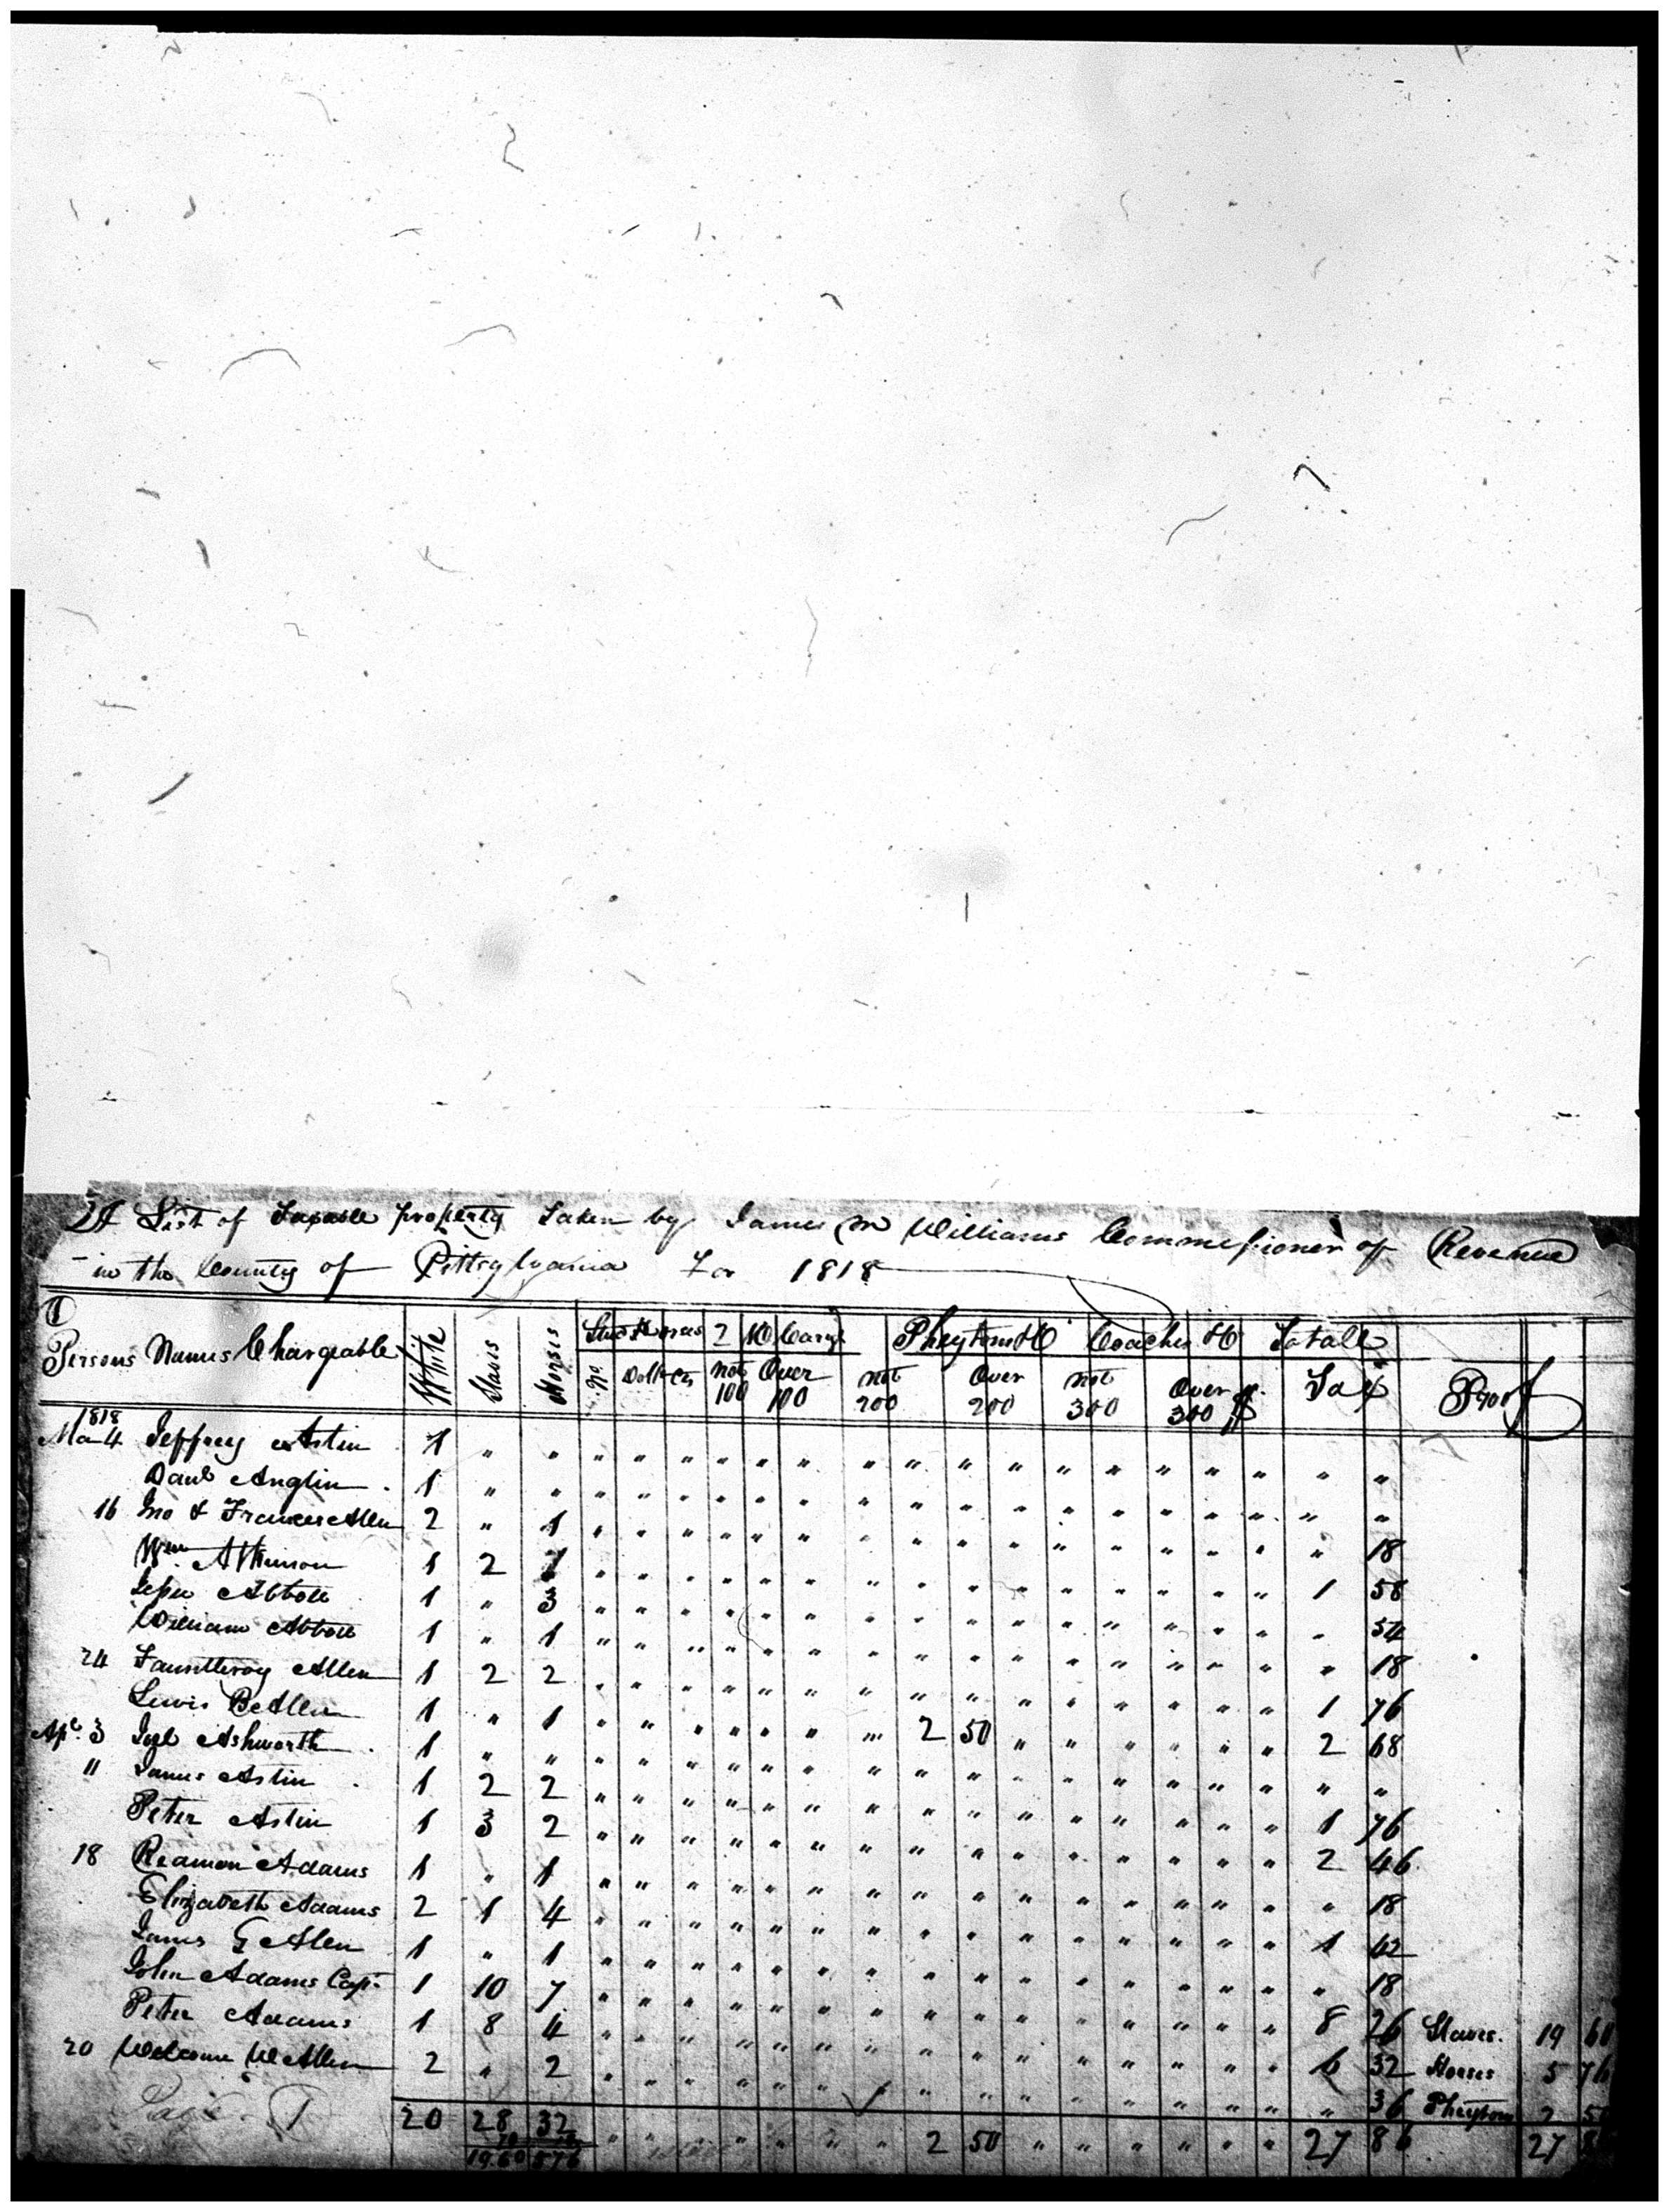 A List of Taxable property Taken by James M Williams Commissioner of Revenue
in the County of Pittsylvania For 1818
1
Persons Names Chargeable White Slaves Horses Stud Horses 2 W Carrge Pheytons &C Coaches &C Totall
No. Doll Cts not 100 Over 100 not 200 Over 200 not 300 Over 300 $ Tax Proof
1818
Ma 4 Jeffrey Astin 1 " " " " " " " " " " " " " " " " " "
Danl Anglin 1 " " " " " " " " " " " " " " " " " "
16 Jno & Frances Allen 2 " 1 " " " " " " " " " " " " " " " 18
Wm Atkinson 1 2 1 " " " " " " " " " " " " " " 1 58
Jesse Abbott 1 " 3 " " " " " " " " " " " " " " " 54
William Abbott 1 " 1 " " " " " " " " " " " " " " " 18
24 Fauntleroy Allen 1 2 2 " " " " " " " " " " " " " " 1 76
Lewis B Allen 1 " 1 " " " " " " " 2 50 " " " " " 2 68
Apl. 3 Joel Ashworth 1 " " " " " " " " " " " " " " " " " "
11 James Astin 1 2 2 " " " " " " " " " " " " " " 1 76
Peter Astin 1 3 2 " " " " " " " " " " " " " " 2 46
18 Reamon Adams 1 " 1 " " " " " " " " " " " " " " " 18
Elizabeth Adams 2 1 4 " " " " " " " " " " " " " " 1 42
James G Allen 1 " 1 " " " " " " " " " " " " " " " 18
John Adams Capt. 1 10 7 " " " " " " " " " " " " " " 8 26 Slaves. 19 60
Peter Adams 1 8 4 " " " " " " " " " " " " " " 6 32 Horses 5 76
20 Welcome W Allen 2 " 2 " " " " " " " " " " " " " " " 36 Pheytons 2 50
20 28 32 " " " " " " 2 50 " " " " " " 27 86 27 86
70 18
19.60 576